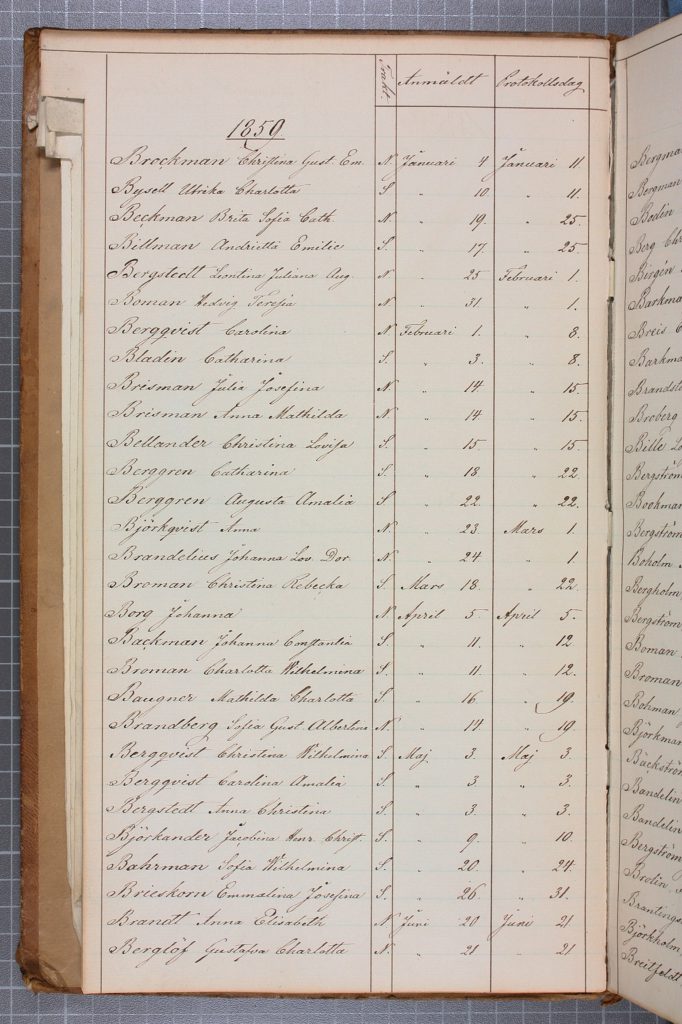 Trakt. Anmäldt Protokollsdag
1859.
Brockman Christina Gust. Em. N. Januari 4 Januari 11
Bysell Ulrika Charlotta S. " 10. " 11.
Beckman Brita Sofia Cath. N. " 19. " 25.
Billman Andrietta Emilie S. " 17. " 25
Bergstedt Leontina Juliana Aug. N " 25 Februari 1.
Boman Hedvig Teresia N. " 31. " 1.
Bergqvist Carolina N Februari 1. " 8.
Bladin Catharina S. " 3. " 8.
Brisman Julia Josefina N. " 14. " 15.
Brisman Anna Mathilda N. " 14 " 15.
Bellander Christina Lovisa S. " 15. " 15.
Berggren Catharina S. " 18. " 22
Berggren Augusta Amalia S. " 22. " 22.
Björkqvist Anna N. " 23. Mars 1.
Brandelius Johanna Lov. Dor. N. " 24 " 1.
Broman Christina Rebecka S. Mars 18. " 22.
Borg Johanna N. April 5. April 5.
Backman Johanna Constantia S. " 11. " 12.
Broman Charlotta Wilhelmina S. " 11. " 12.
Baugner Mathilda Charlotta S. " 16. " 19.
Brandberg Sofia Gust. Albertina N. " 14. " 19.
Bergqvist Christina Wilhelmina S. Maj. 3. Maj 3.
Bergqvist Carolina Amalia S. " 3. " 3.
Bergstedt Anna Christina S. " 3. " 3.
Björkander Jacobina Henr. Christ. S. " 9. " 10.
Bahrman Sofia Wilhelmina S. " 20. " 24.
Brieskorn Emmalina Josefina S. " 26. " 31.
Brandt Anna Elisabeth N Juni 20 Juni 21
Berglöf Gustafva Charlotta N. " 21 " 21
Bergma
Bergman
Bodin
Berg Chr
Birgén
Barkma
Breis
Barkma
Brandst
Broberg
Bille Lo
Bergström
Bockman
Bergström
Boholm
Bergholm
Bergström
Boman
Broman
Bohman
Björkman
Bäckströ
Bandelin
Bandelin
Bergström
Brolin
Brantings
Björkholm
Breitfeldt